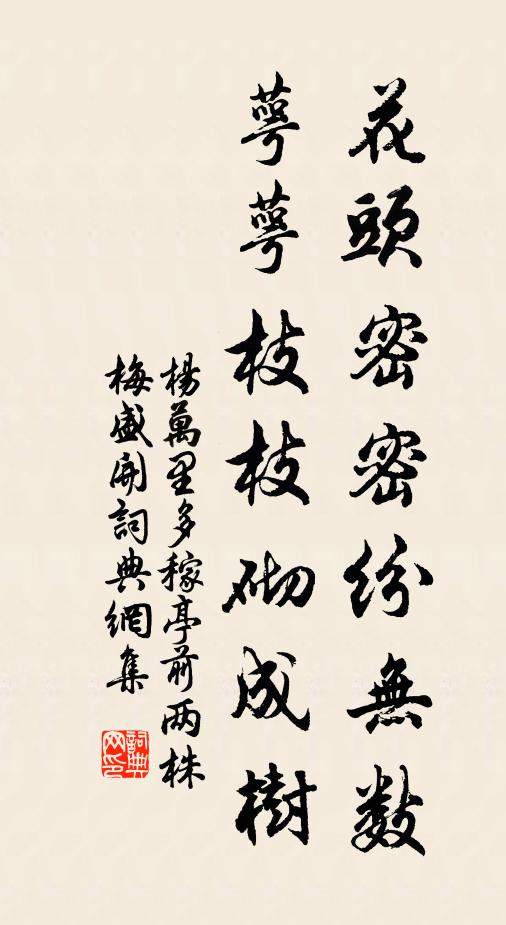 花頭密密紛無數
萼萼枝枝砌成樹
楊萬里多稼亭前兩株
梅盛開詞典網集
詞典
网印